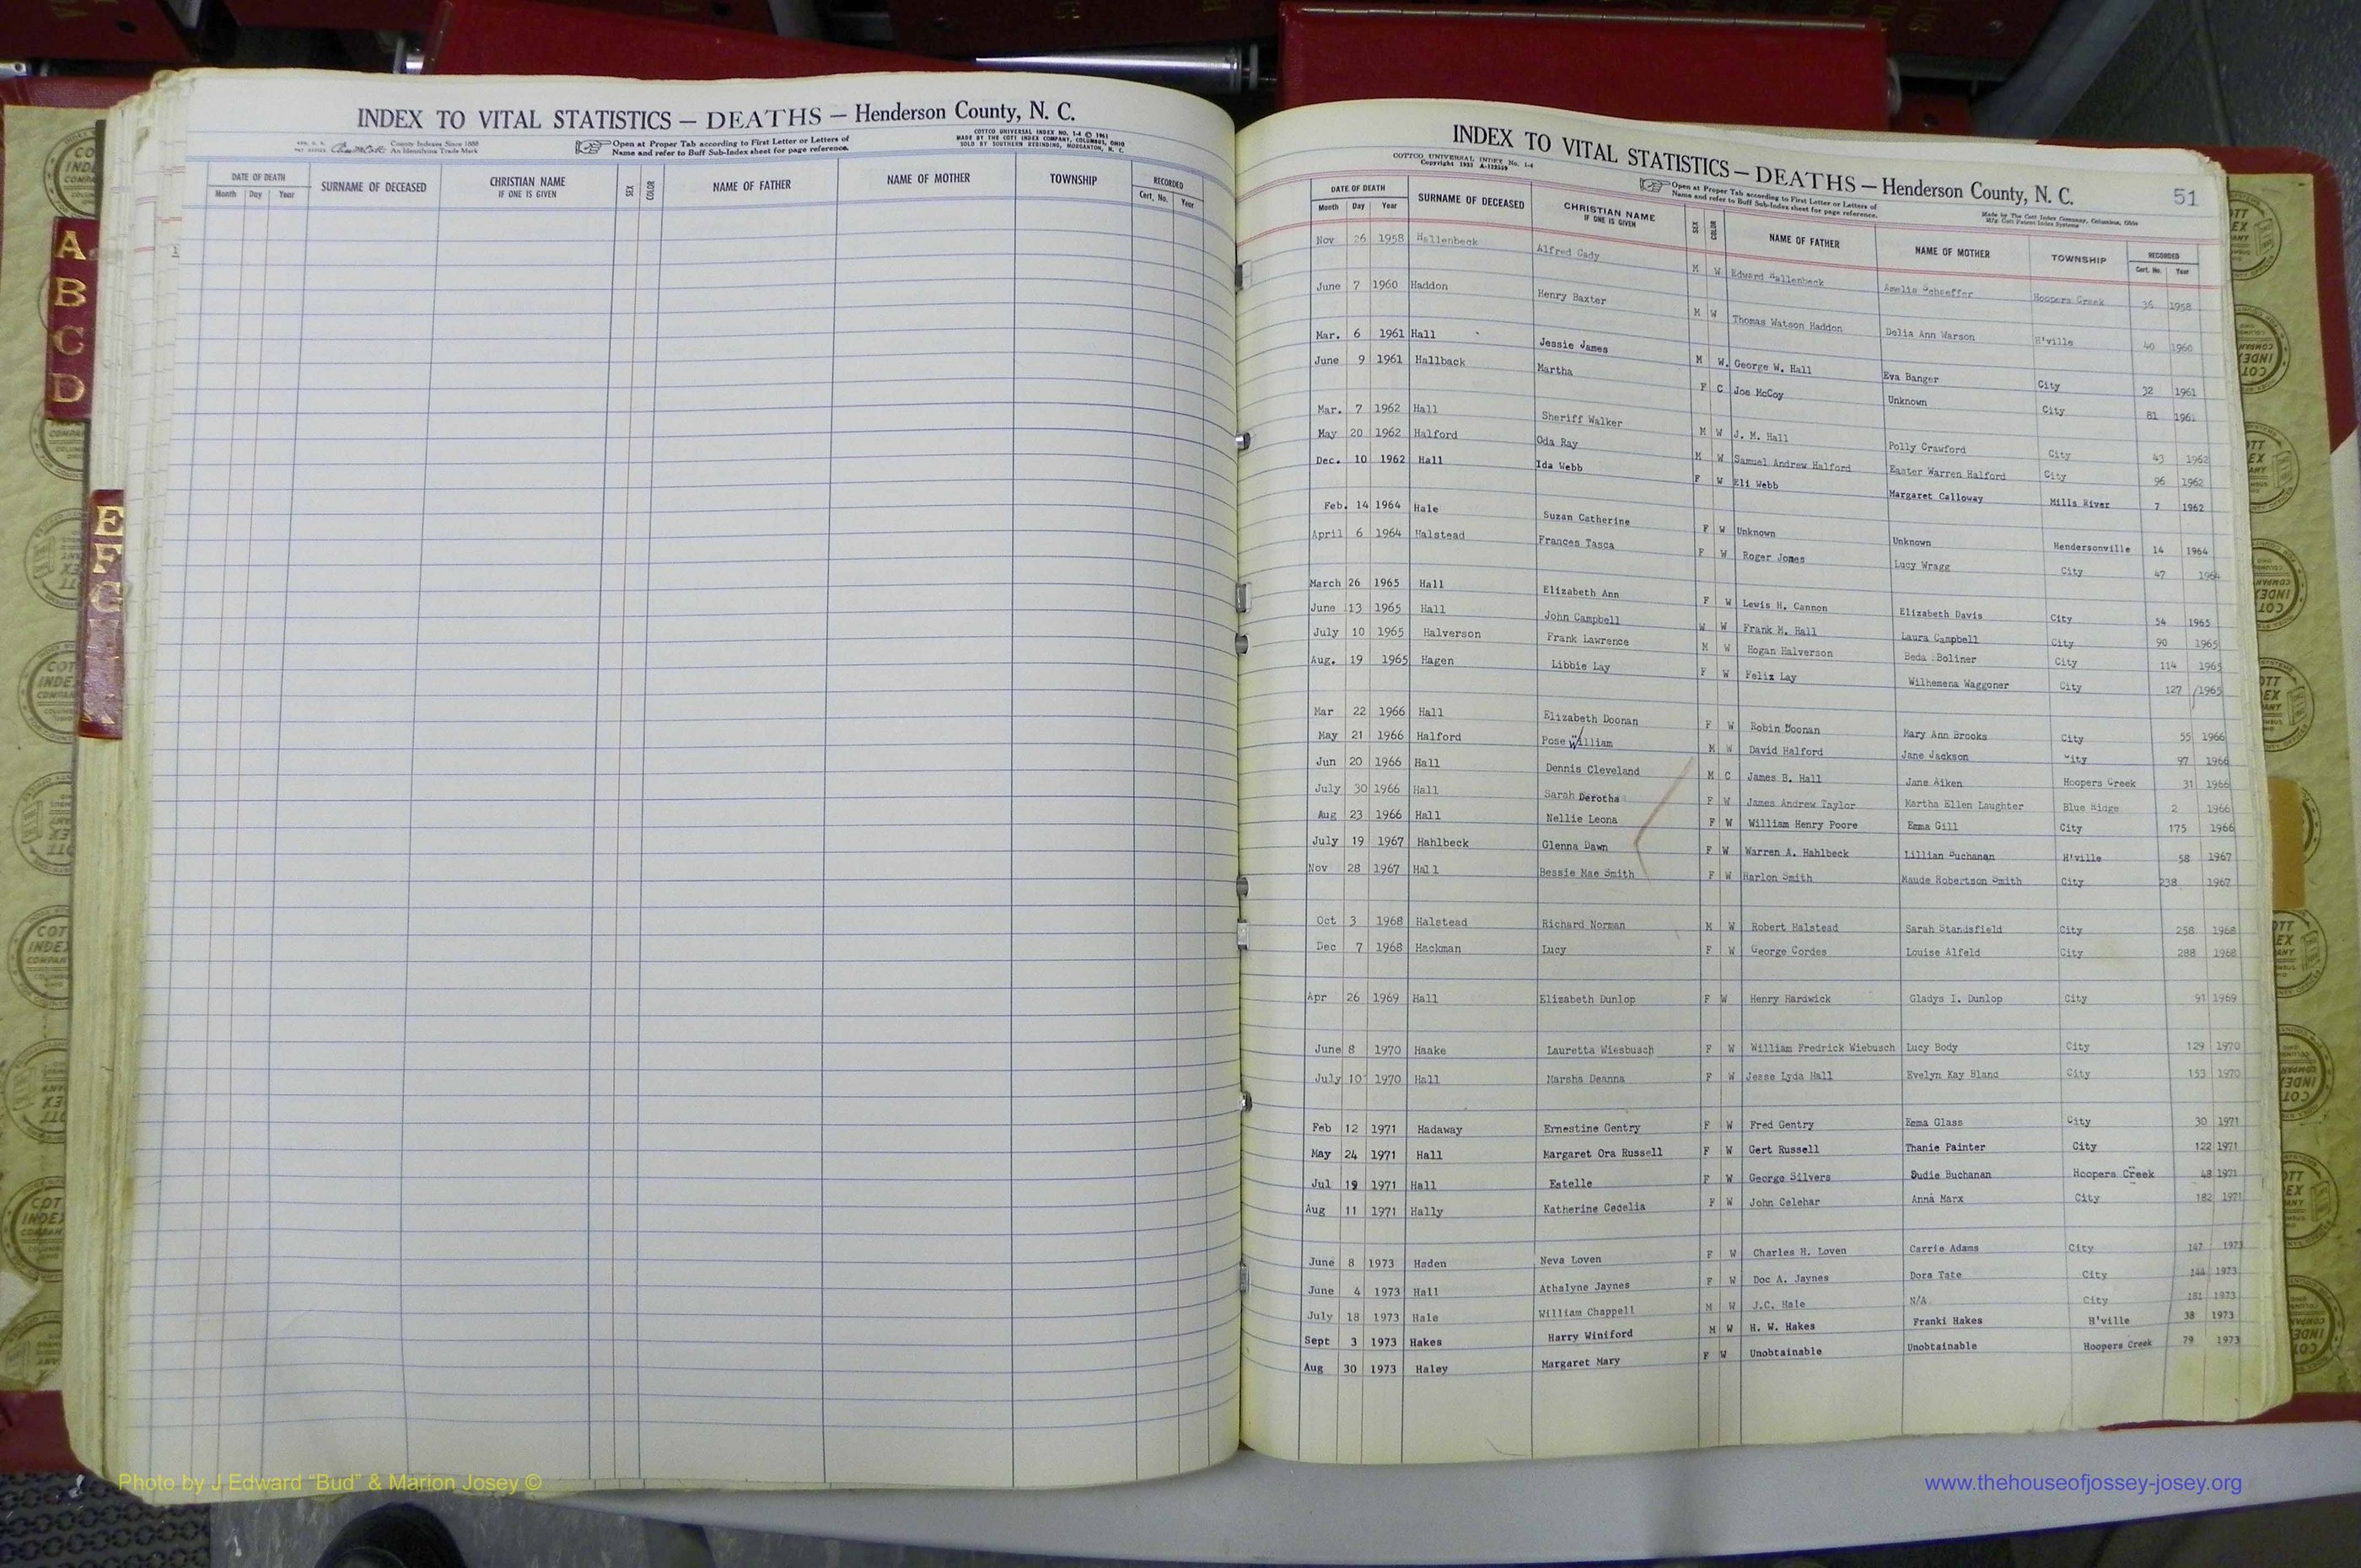 INDEX TO VITAL STATISTICS — DEATHS — Henderson County, N. C.
County Indexes Since 1888
An Identifying Trade Mark
Open at Proper Tab according to First Letter or Letters of
Name and refer to Buff Sub-Index sheet for page reference.
COTTCO UNIVERSAL INDEX NO. 1-4 © 1961
MADE BY THE COTT INDEX COMPANY, COLUMBUS, OHIO
SOLD BY SOUTHERN REBINDING, MORGANTON, N. C.
DATE OF DEATH SURNAME OF DECEASED CHRISTIAN NAME IF ONE IS GIVEN SEX COLOR NAME OF FATHER NAME OF MOTHER TOWNSHIP RECORDED
Month Day Year Cert. No. Year
A
B
C
D
E
F
G
INDEX TO VITAL STATISTICS — DEATHS — Henderson County, N. C. 51
COTTCO UNIVERSAL INDEX No. 1-4
Open at Proper Tab according to First Letter or Letters of
Name and refer to Buff Sub-Index sheet for page reference.
Made by The Cott Index Company, Columbus, Ohio
DATE OF DEATH SURNAME OF DECEASED CHRISTIAN NAME IF ONE IS GIVEN SEX COLOR NAME OF FATHER NAME OF MOTHER TOWNSHIP RECORDED
Month Day Year Cert. No. Year
Nov 26 1958 Hallenbeck Alfred Cady M W Edward Hallenbeck Amelia Schaeffer Hoopers Creek 36 1958
June 7 1960 Haddon Henry Baxter M W Thomas Watson Haddon Delia Ann Warson H'ville 40 1960
Mar. 6 1961 Hall Jessie James M W. George W. Hall Eva Banger City 32 1961
June 9 1961 Hallback Martha F C Joe McCoy Unknown City 81 1961
Mar. 7 1962 Hall Sheriff Walker M W J. M. Hall Polly Crawford City 43 1962
May 20 1962 Halford Oda Ray M W Samuel Andrew Halford Easter Warren Halford City 96 1962
Dec. 10 1962 Hall Ida Webb F W Eli Webb Margaret Calloway Mills River 7 1962
Feb. 14 1964 Hale Suzan Catherine F W Unknown Unknown Hendersonville 14 1964
April 6 1964 Halstead Frances Tasca F W Roger Jones Lucy Wragg City 47 1964
March 26 1965 Hall Elizabeth Ann F W Lewis H. Cannon Elizabeth Davis City 54 1965
June 13 1965 Hall John Campbell W W Frank M. Hall Laura Campbell City 90 1965
July 10 1965 Halverson Frank Lawrence M W Hogan Halverson Beda Boliner City 114 1965
Aug. 19 1965 Hagen Libbie Lay F W Felix Lay Wilhemena Waggoner City 127 1965
Mar 22 1966 Hall Elizabeth Doonan F W Robin Doonan Mary Ann Brooks City 55 1966
May 21 1966 Halford Pose William M W David Halford Jane Jackson City 97 1966
Jun 20 1966 Hall Dennis Cleveland M C James B. Hall Jane Aiken Hoopers Creek 31 1966
July 30 1966 Hall Sarah Derotha F W James Andrew Taylor Martha Ellen Laughter Blue Ridge 2 1966
Aug 23 1966 Hall Nellie Leona F W William Henry Poore Emma Gill City 175 1966
July 19 1967 Hahlbeck Glenna Dawn F W Warren A. Hahlbeck Lillian Buchanan H'ville 58 1967
Nov 28 1967 Hall Bessie Mae Smith F W Harlon Smith Maude Robertson Smith City 238 1967
Oct 3 1968 Halstead Richard Norman M W Robert Halstead Sarah Standsfield City 258 1968
Dec 7 1968 Hackman Lucy F W George Cordes Louise Alfeld City 288 1968
Apr 26 1969 Hall Elizabeth Dunlop F W Henry Hardwick Gladys I. Dunlop City 91 1969
June 8 1970 Haake Lauretta Wiesbusch F W William Fredrick Wiebusch Lucy Body City 129 1970
July 10 1970 Hall Marsha Deanna F W Jesse Lyda Hall Evelyn Kay Bland City 153 1970
Feb 12 1971 Hadaway Ernestine Gentry F W Fred Gentry Emma Glass City 30 1971
May 24 1971 Hall Margaret Ora Russell F W Gert Russell Thanie Painter City 122 1971
Jul 19 1971 Hall Estelle F W George Silvers Sudie Buchanan Hoopers Creek 48 1971
Aug 11 1971 Hally Katherine Cecelia F W John Celehar Anna Marx City 182 1971
June 8 1973 Haden Neva Loven F W Charles H. Loven Carrie Adams City 147 1973
June 4 1973 Hall Athalyne Jaynes F W Doc A. Jaynes Dora Tate City 144 1973
July 18 1973 Hale William Chappell M W J.C. Hale N/A City 181 1973
Sept 3 1973 Hakes Harry Winiford M W H. W. Hakes Franki Hakes H'ville 38 1973
Aug 30 1973 Haley Margaret Mary F W Unobtainable Unobtainable Hoopers Creek 79 1973
Photo by J Edward “Bud” & Marion Josey ©
www.thehouseofjossey-josey.org